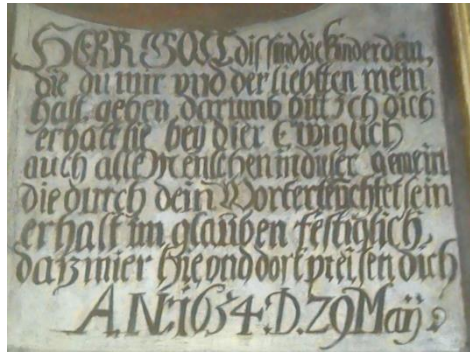 HERR GOTT dis sind die kinder dein,
die du mir vnd der liebsten mein
hast geben darumb bitt Ich dich
erhalt sie bey dier Ewiglich
auch alle Menschen in diser gemein
die durch dein Wort erleuchtet sein
erhalt im glauben festiglich,
daß mier hie vnd dort preisen dich
A.N: 1654. D. 29 Maÿ